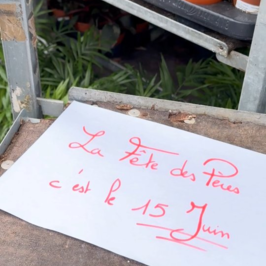 La Fête des Pères
c'est le 15 Juin